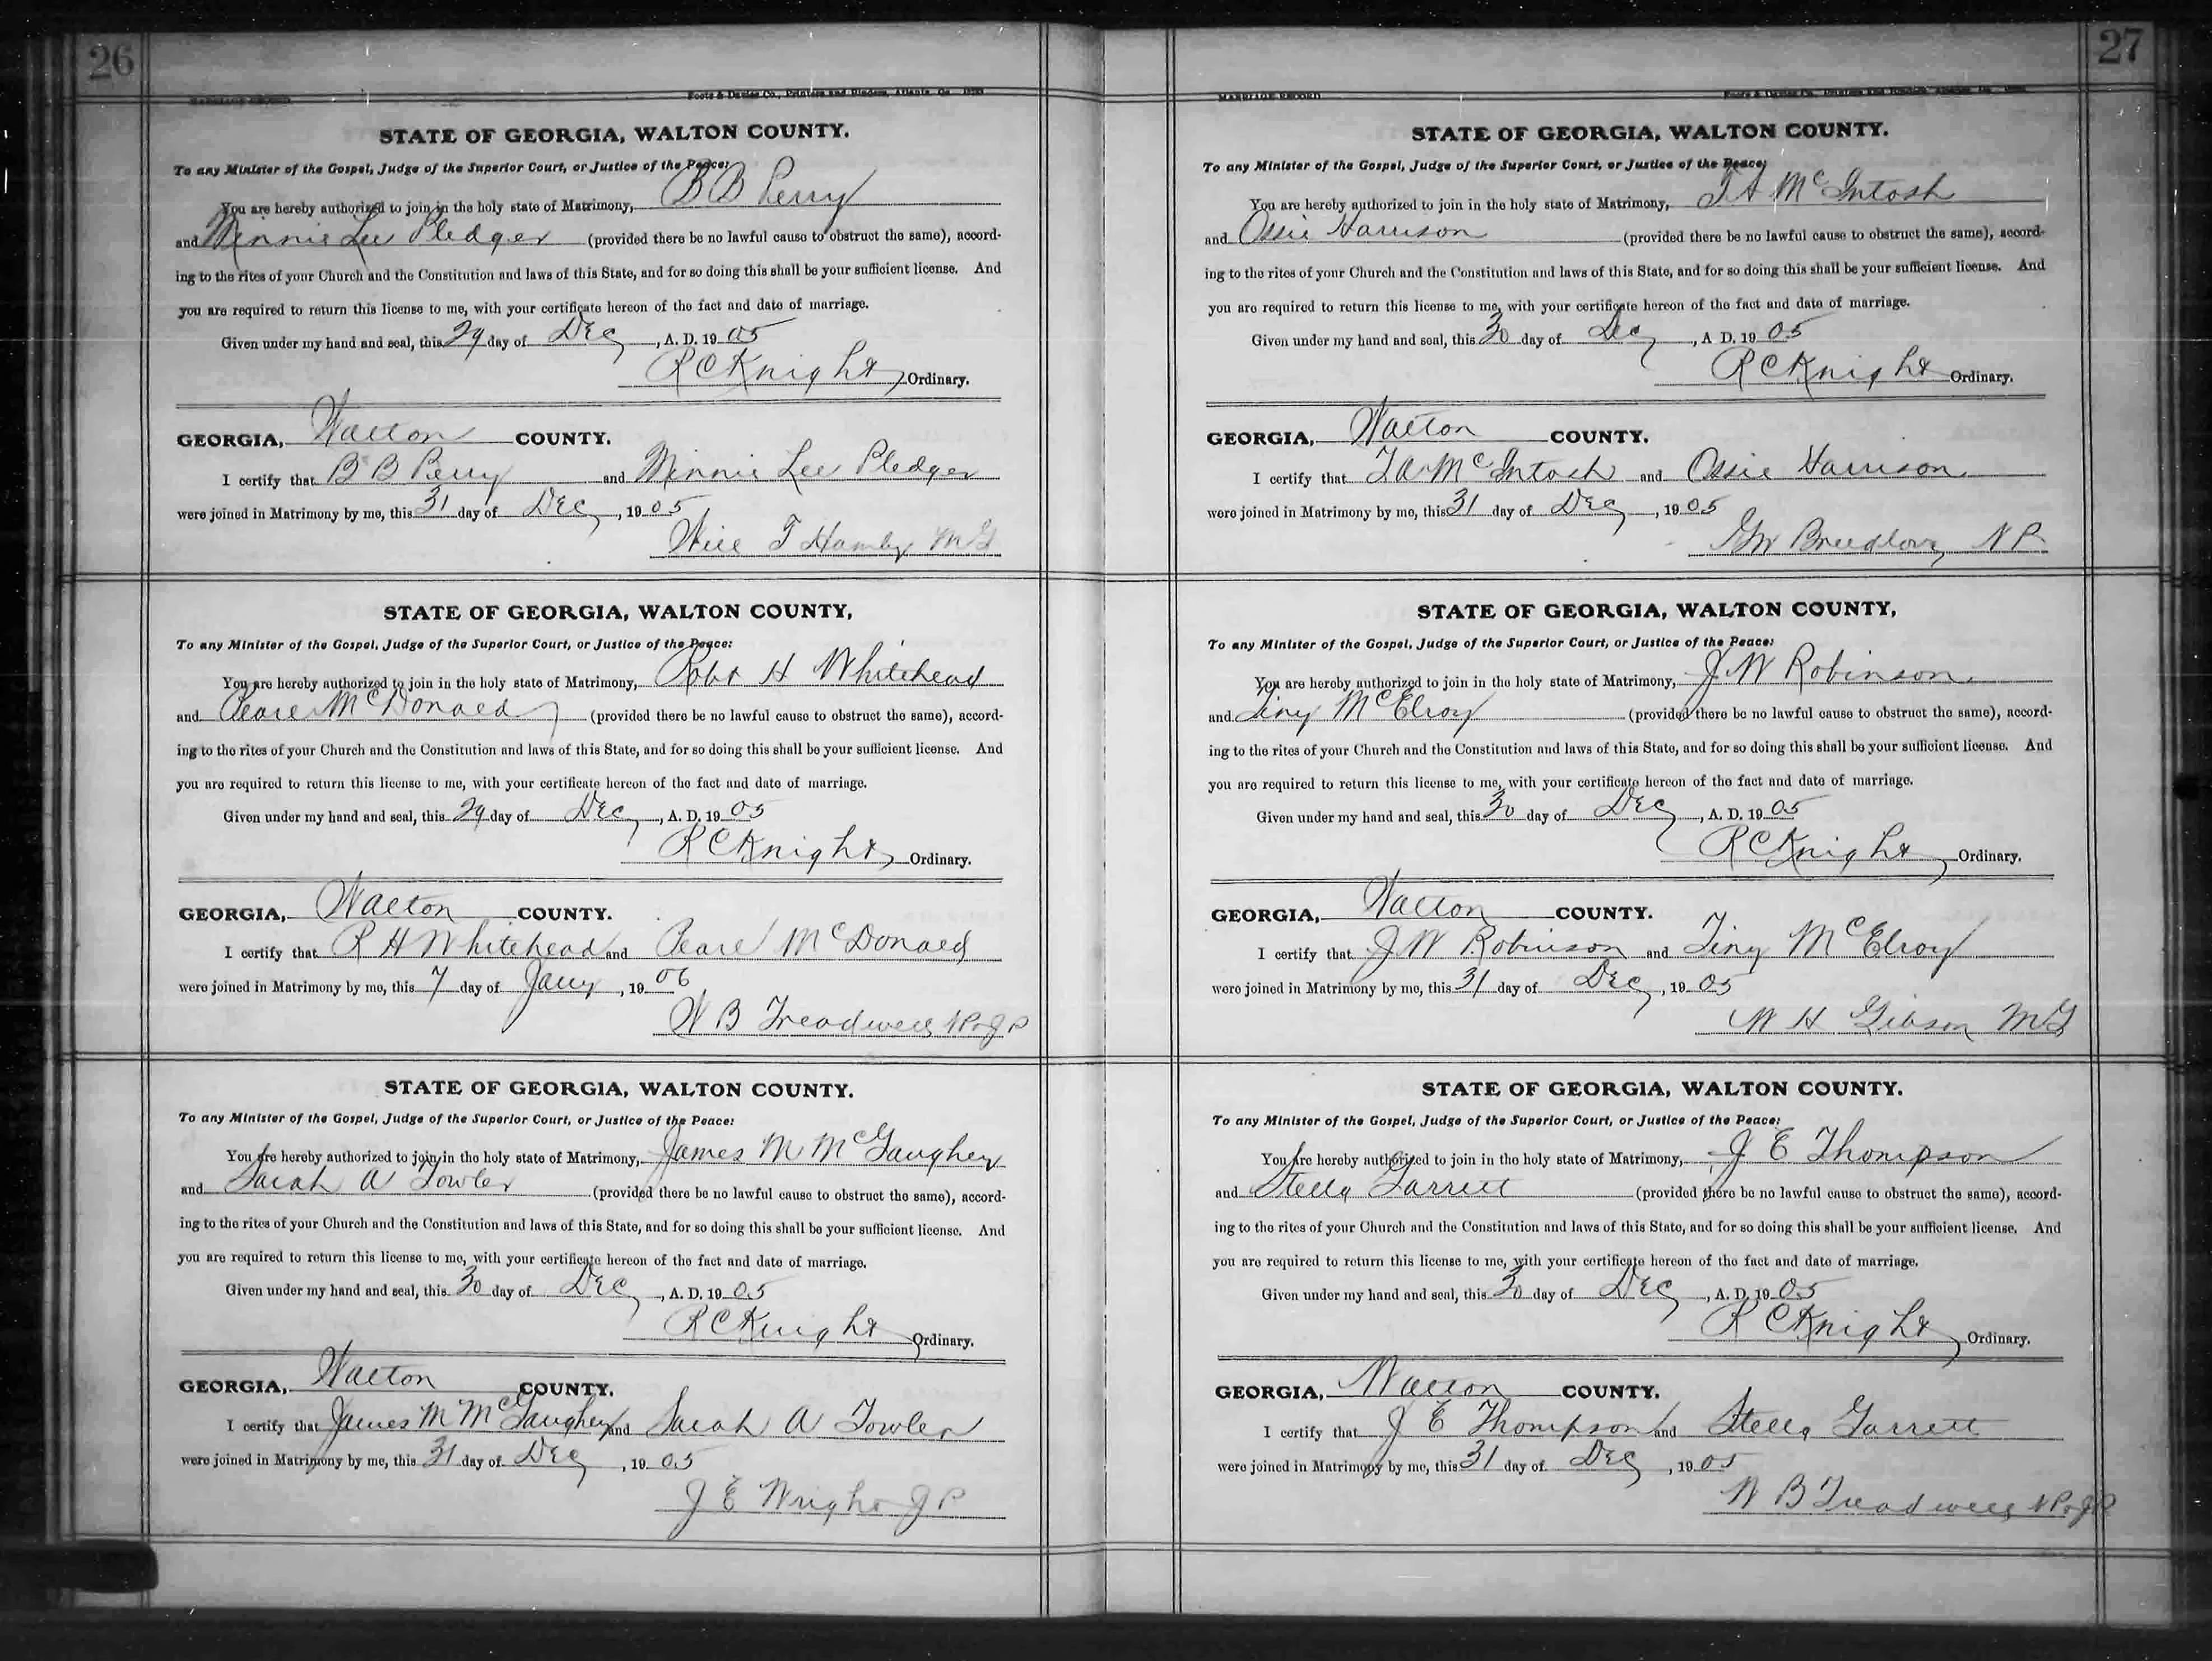 26
MARRIAGE RECORD
Foote & Davies Co., Printers and Binders, Atlanta, Ga.
STATE OF GEORGIA, WALTON COUNTY.
To any Minister of the Gospel, Judge of the Superior Court, or Justice of the Peace:
You are hereby authorized to join in the holy state of Matrimony, B B Perry
and Minnie Lee Pledger (provided there be no lawful cause to obstruct the same), accord-
ing to the rites of your Church and the Constitution and laws of this State, and for so doing this shall be your sufficient license. And
you are required to return this license to me, with your certificate hereon of the fact and date of marriage.
Given under my hand and seal, this 29 day of Dec, A. D. 19 05
R C Knight, Ordinary.
GEORGIA, Walton COUNTY.
I certify that B B Perry and Minnie Lee Pledger
were joined in Matrimony by me, this 31 day of Dec, 19 05
Will T Hamby M G
STATE OF GEORGIA, WALTON COUNTY,
To any Minister of the Gospel, Judge of the Superior Court, or Justice of the Peace:
You are hereby authorized to join in the holy state of Matrimony, Robt H Whitehead
and Pearl McDonald (provided there be no lawful cause to obstruct the same), accord-
ing to the rites of your Church and the Constitution and laws of this State, and for so doing this shall be your sufficient license. And
you are required to return this license to me, with your certificate hereon of the fact and date of marriage.
Given under my hand and seal, this 29 day of Dec, A. D. 19 05
R C Knight, Ordinary.
GEORGIA, Walton COUNTY.
I certify that R H Whitehead and Pearl McDonald
were joined in Matrimony by me, this 7 day of Jany, 19 06
W B Treadwell N P & J P
STATE OF GEORGIA, WALTON COUNTY.
To any Minister of the Gospel, Judge of the Superior Court, or Justice of the Peace:
You are hereby authorized to join in the holy state of Matrimony, James M McGaughey
and Sarah A Towler (provided there be no lawful cause to obstruct the same), accord-
ing to the rites of your Church and the Constitution and laws of this State, and for so doing this shall be your sufficient license. And
you are required to return this license to me, with your certificate hereon of the fact and date of marriage.
Given under my hand and seal, this 30 day of Dec, A. D. 19 05
R C Knight Ordinary.
GEORGIA, Walton COUNTY.
I certify that James M McGaughey and Sarah A Towler
were joined in Matrimony by me, this 31 day of Dec, 19 05
J E Wright J P
27
MARRIAGE RECORD
STATE OF GEORGIA, WALTON COUNTY.
To any Minister of the Gospel, Judge of the Superior Court, or Justice of the Peace;
You are hereby authorized to join in the holy state of Matrimony, T A McIntosh
and Ossie Harrison (provided there be no lawful cause to obstruct the same), accord-
ing to the rites of your Church and the Constitution and laws of this State, and for so doing this shall be your sufficient license. And
you are required to return this license to me, with your certificate hereon of the fact and date of marriage.
Given under my hand and seal, this 30 day of Dec, A D. 19 05
R C Knight Ordinary.
GEORGIA, Walton COUNTY.
I certify that T A McIntosh and Ossie Harrison
were joined in Matrimony by me, this 31 day of Dec, 19 05
Breedlove N P
STATE OF GEORGIA, WALTON COUNTY,
To any Minister of the Gospel, Judge of the Superior Court, or Justice of the Peace:
You are hereby authorized to join in the holy state of Matrimony, J W Robinson
and Tiny McElroy (provided there be no lawful cause to obstruct the same), accord-
ing to the rites of your Church and the Constitution and laws of this State, and for so doing this shall be your sufficient license. And
you are required to return this license to me, with your certificate hereon of the fact and date of marriage.
Given under my hand and seal, this 30 day of Dec, A. D. 19 05
R C Knight, Ordinary.
GEORGIA, Walton COUNTY.
I certify that J W Robinson and Tiny McElroy
were joined in Matrimony by me, this 31 day of Dec, 19 05
W H Gibson M G
STATE OF GEORGIA, WALTON COUNTY.
To any Minister of the Gospel, Judge of the Superior Court, or Justice of the Peace:
You are hereby authorized to join in the holy state of Matrimony, J E Thompson
and Stella Garrett (provided there be no lawful cause to obstruct the same), accord-
ing to the rites of your Church and the Constitution and laws of this State, and for so doing this shall be your sufficient license. And
you are required to return this license to me, with your certificate hereon of the fact and date of marriage.
Given under my hand and seal, this 30 day of Dec, A. D. 19 05
R C Knight, Ordinary.
GEORGIA, Walton COUNTY.
I certify that J E Thompson and Stella Garrett
were joined in Matrimony by me, this 31 day of Dec, 19 05
W B Treadwell N P & J P